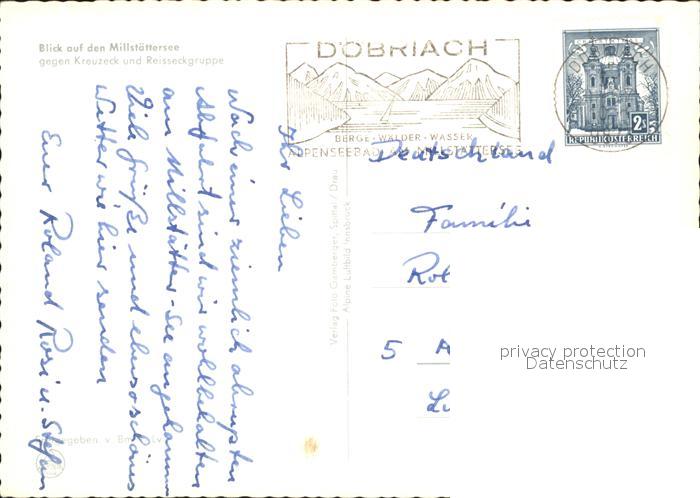 Blick auf den Millstättersee
gegen Kreuzeck und Reisseckgruppe
DÖBRIACH
BERGE - WÄLDER - WASSER
ALPENSEEBAD AM MILLSTÄTTERSEE
2.50
REPUBLIK ÖSTERREICH
Ihr Lieben
Nach einer ziemlich abrupten
Abfahrt sind wir wohlbehalten
am Millstätter-See angekommen
Viele Grüße und ebenso schönes
Wetter wie hier senden
Euer Roland Rosi u. Stefan
Verlag Foto Gamberger, Spittal / Drau
Alpine Luftbild Innsbruck
Deutschland
Familie
Rot
5 A
privacy protection
Datenschutz